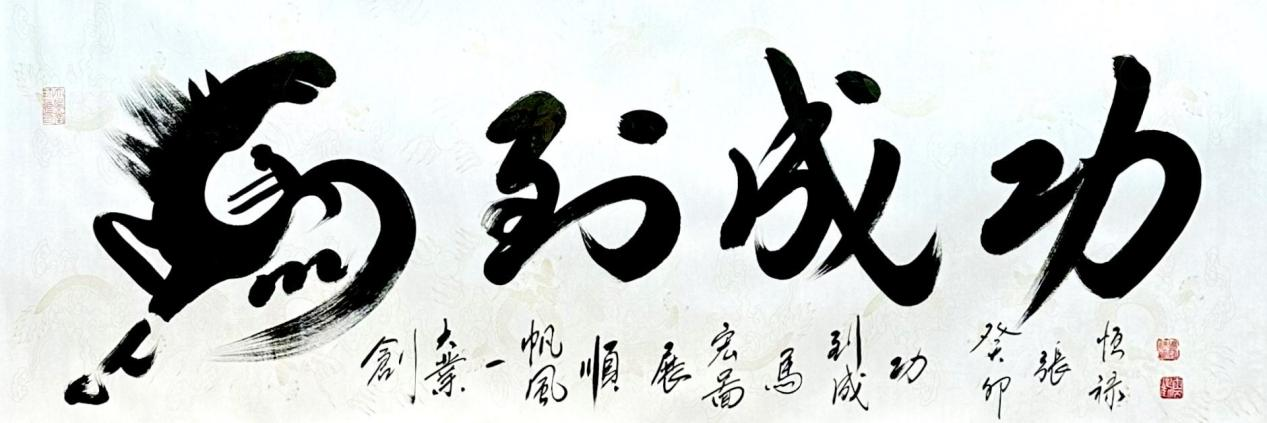 馬到成功
創大業一帆風順展宏圖馬到成功
癸卯張恒禄